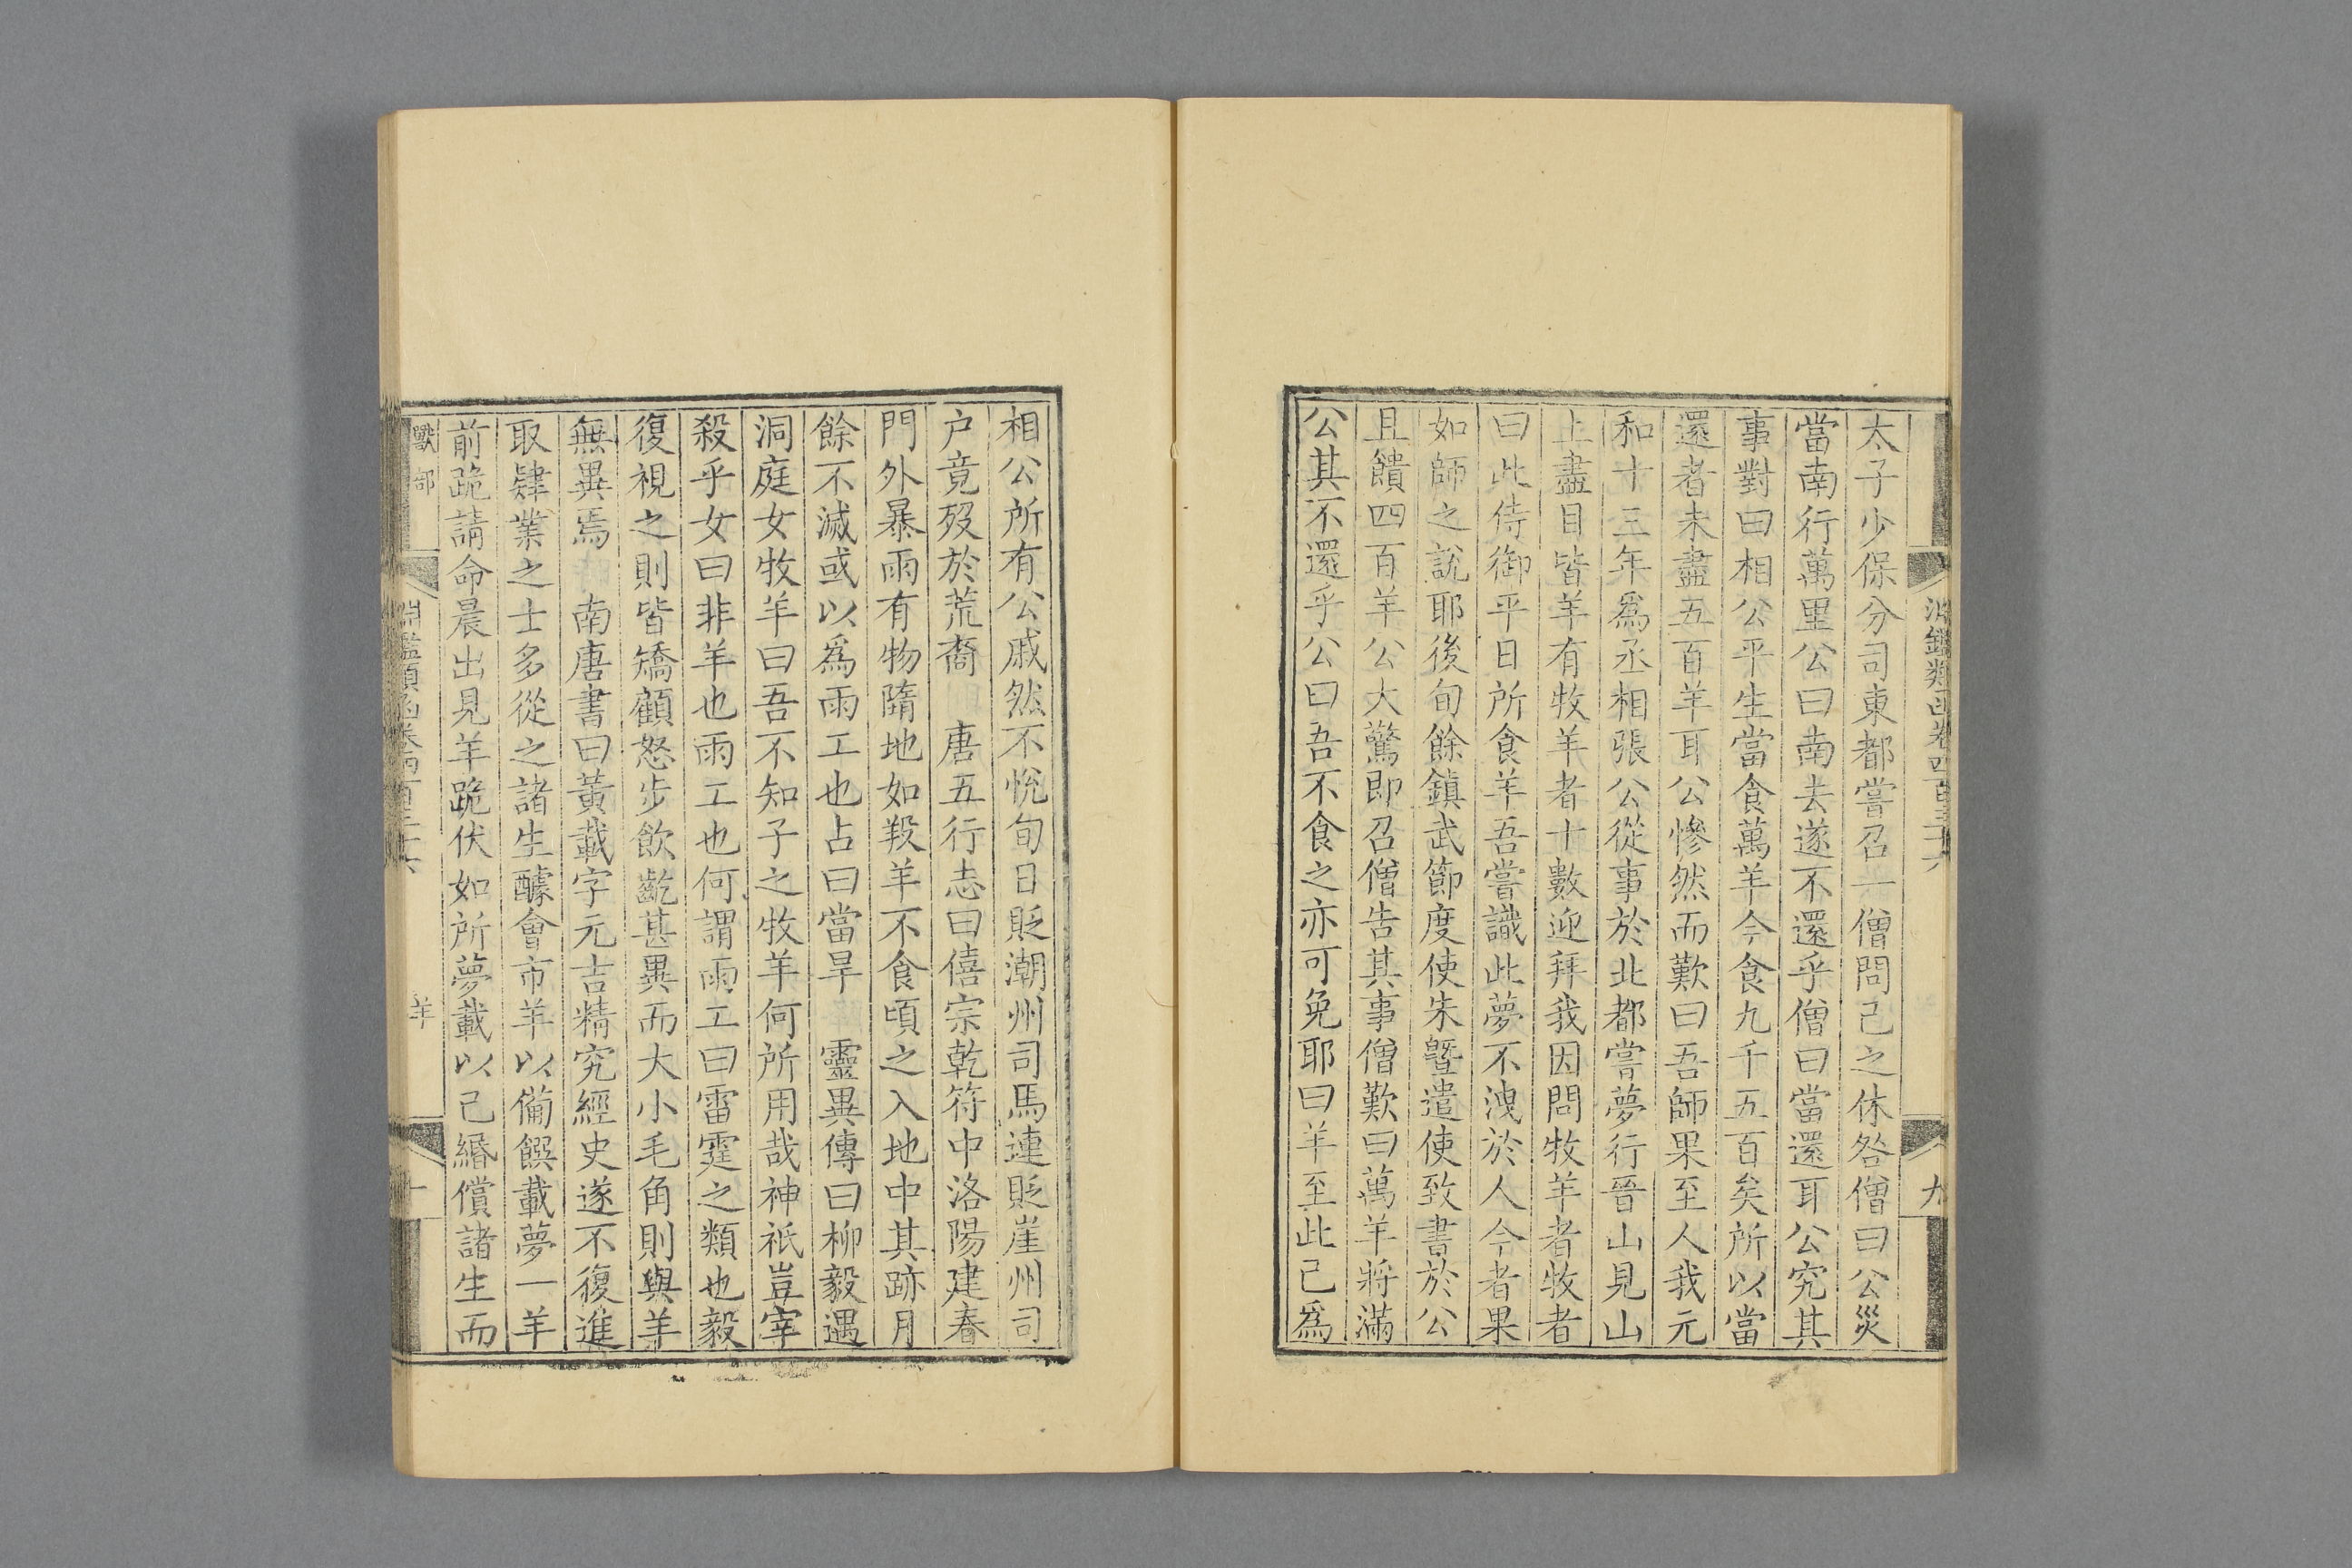 淵鑑類函卷四百三十六
九
太子少保分司東都嘗召一僧問己之休咎僧曰公災
當南行萬里公曰南去遂不還乎僧曰當還耳公究其
事對曰相公平生當食萬羊今食九千五百矣所以當
還者未盡五百羊耳公慘然而歎曰吾師果至人我元
和十三年爲丞相張公從事於北都嘗夢行晉山見山
上盡目皆羊有牧羊者十數迎拜我因問牧羊者牧者
曰此侍御平日所食羊吾嘗識此夢不洩於人今者果
如師之說耶後旬餘鎮武節度使朱曁遣使致書於公
且饋四百羊公大驚即召僧告其事僧歎曰萬羊將滿
公其不還乎公曰吾不食之亦可免耶曰羊至此已爲
相公所有公戚然不悅旬日貶潮州司馬連貶崖州司
户竟殁於荒裔 唐五行志曰僖宗乾符中洛陽建春
門外暴雨有物隋地如羖羊不食頃之入地中其跡月
餘不滅或以爲雨工也占曰當旱 靈異傳曰柳毅遇
洞庭女牧羊曰吾不知子之牧羊何所用哉神祇豈宰
殺乎女曰非羊也雨工也何謂雨工曰雷霆之類也毅
復視之則皆矯顧怒步飲齕甚異而大小毛角則與羊
無異焉 南唐書曰黃載字元吉精究經史遂不復進
取肄業之士多從之諸生醵會市羊以備饌載夢一羊
前跪請命晨出見羊跪伏如所夢載以己緡償諸生而
獸部
淵鑑類函卷四百三十六
羊
十